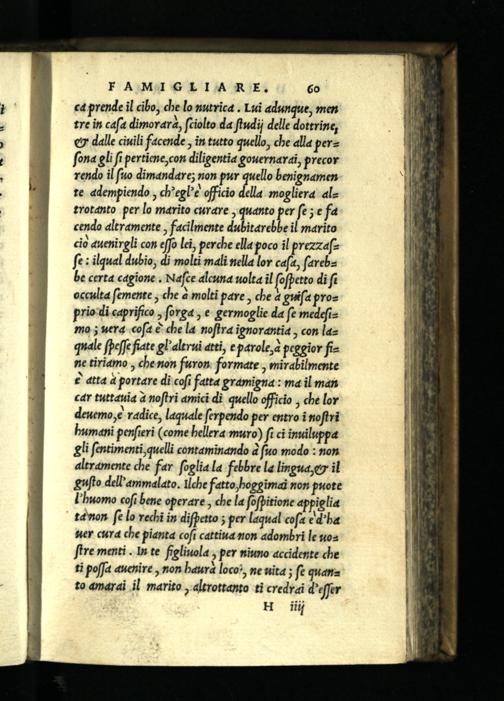 FAMIGLIARE. 60
ca prende il cibo, che lo nutrica. Lui adunque, men
tre in caſa dimorarà, ſciolto da ſtudij delle dottrine,
& dalle ciuili facende, in tutto quello, che alla per=
ſona gli ſi pertiene, con diligentia gouernarai, precor
rendo il ſuo dimandare; non pur quello benignamen
te adempiendo, ch'egl'è officio della mogliera al=
trotanto per lo marito curare, quanto per ſe; e fa
cendo altramente, facilmente dubitarebbe il marito
ciò auenirgli con eſſo lei, perche ella poco il prezzaſ=
ſe: ilqual dubio, di molti mali nella lor caſa, ſareb=
be certa cagione. Naſce alcuna uolta il ſoſpetto di ſi
occulta ſemente, che à molti pare, che à guiſa pro=
prio di caprifico, ſorga, e germoglie da ſe medeſi=
mo; uera coſa è che la noſtra ignorantia, con la=
quale ſpeſſe fiate gl'altrui atti, e parole, à peggior fi=
ne tiriamo, che non furon formate, mirabilmente
è atta à portare di coſi fatta gramigna: ma il man
car tuttauia à noſtri amici di quello officio, che lor
deuemo, è radice, laquale ſerpendo per entro i noſtri
humani penſieri (come hellera muro) ſi ci inuiluppa
gli ſentimenti, quelli contaminando à ſuo modo: non
altramente che far ſoglia la febbre la lingua, & il
guſto dell'ammalato. Ilche fatto, hoggimai non puote
l'huomo coſi bene operare, che la ſoſpitione appiglia
ta non ſe lo rechi in diſpetto; per laqual coſa è d'ha
uer cura che pianta coſi cattiua non adombri le uo=
ſtre menti. In te figliuola, per niuno accidente che
ti poſſa auenire, non haurà loco, ne uita; ſe quan=
to amarai il marito, altrottanto ti credrai d'eſſer
H iiij